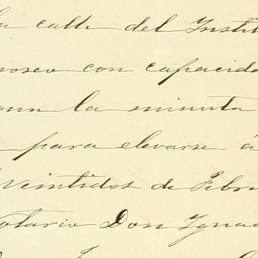 la calle del Instit
nosco con capacida
gun la minuta
para elevarse á
Veintidos de Febr
otario Don Ignac